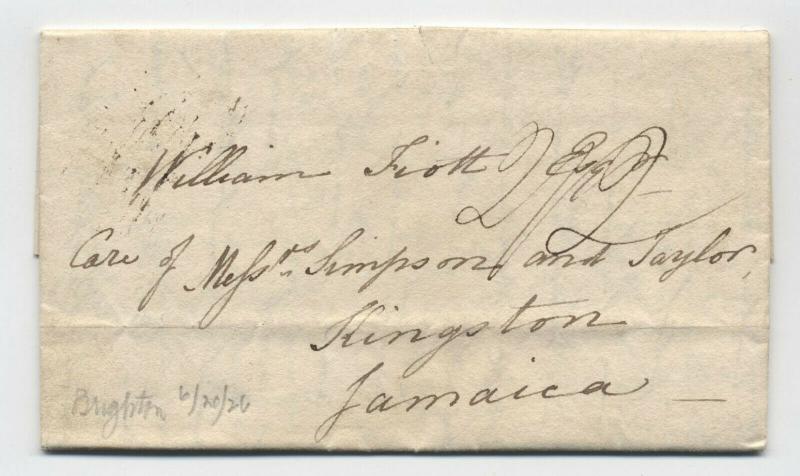 William Fiott Esqr
Care of Messrs Simpson and Taylor,
Kingston
Jamaica
Brighton 6/20/26